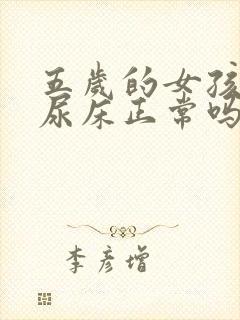 五歲的女孩
尿床正常吗
李彦增